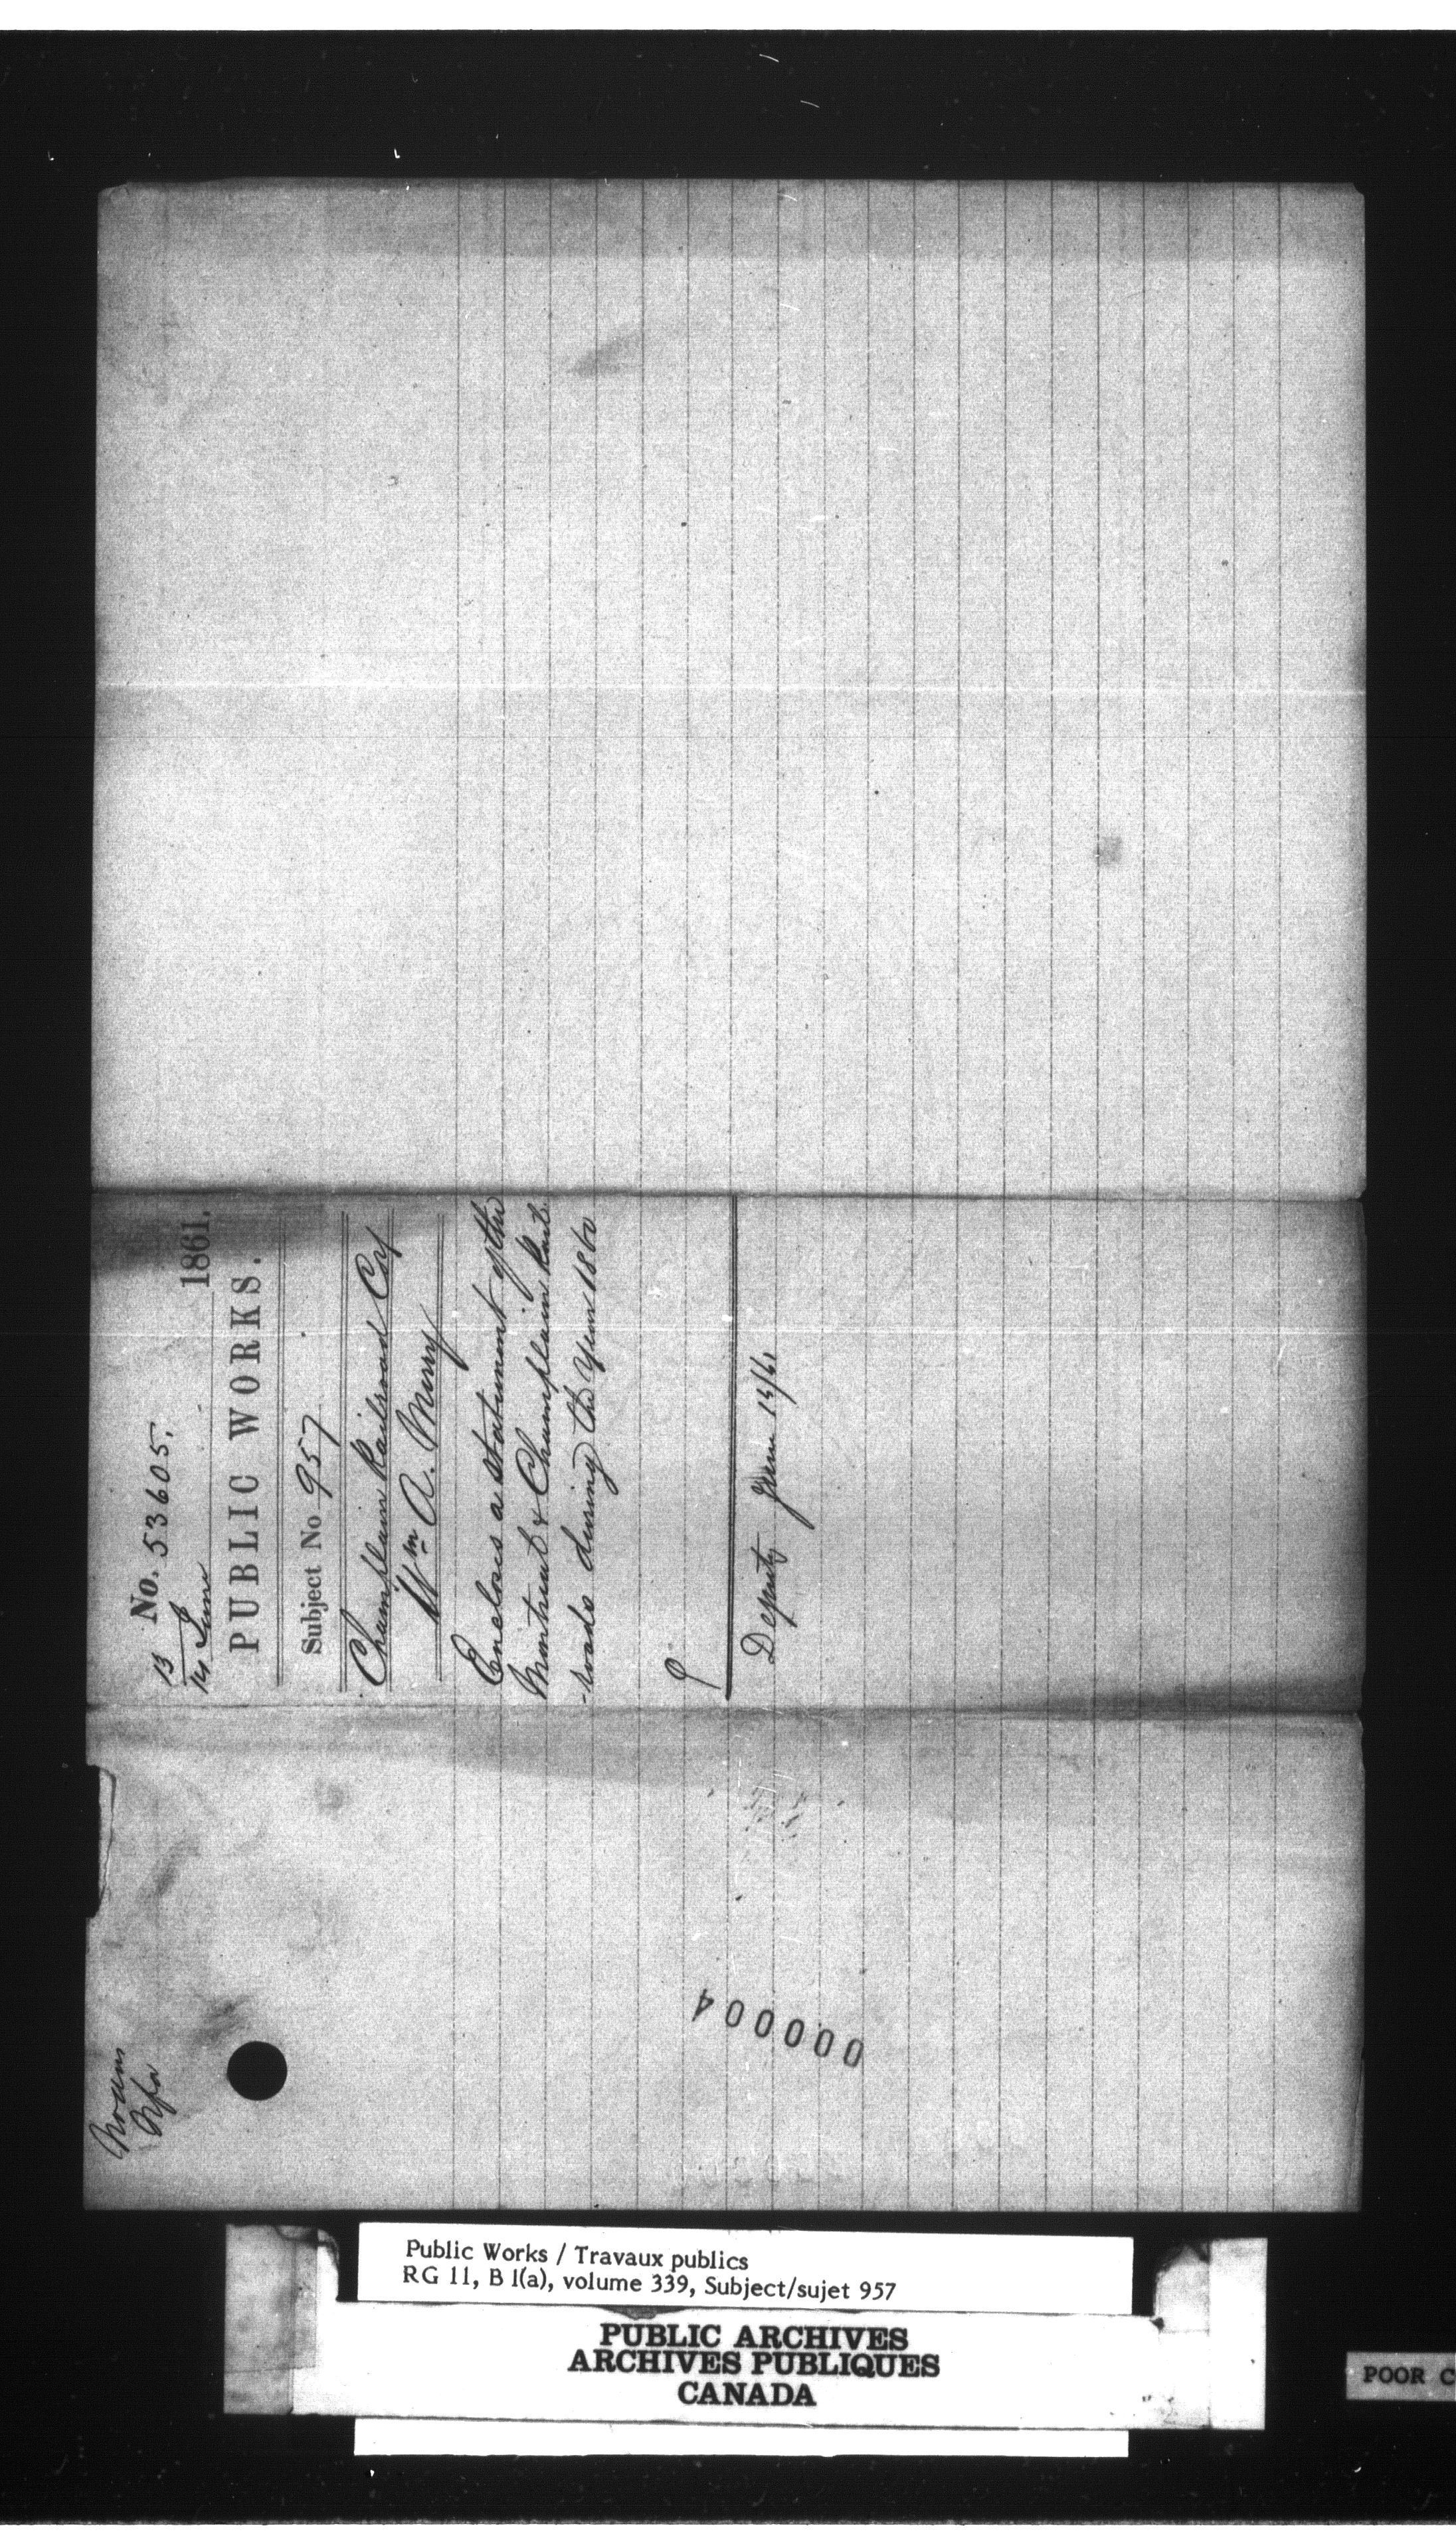 No. 53605.
13
14 June 1861.
PUBLIC WORKS.
Subject No 957
Champlain Railroad Coy
Wm A. Merry
Encloses a statement of the
Montreal & Champlain Rail
-roads during the Year 1860
Deputy June 14/61
000004
Public Works / Travaux publics
RG 11, B 1(a), volume 339, Subject/sujet 957
PUBLIC ARCHIVES
ARCHIVES PUBLIQUES
CANADA
POOR C